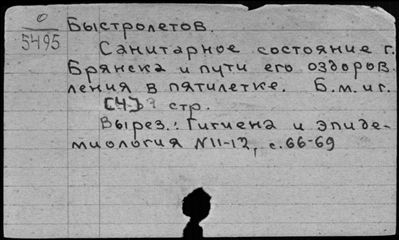 0
5495
Быстролетов.
Санитарное состояние г.
Брянска и пути его оздоров-
ления в пятилетке. Б.м.иг.
[4] стр.
Вырез.: Гигиена и эпиде-
миология N11-12, с.66-69